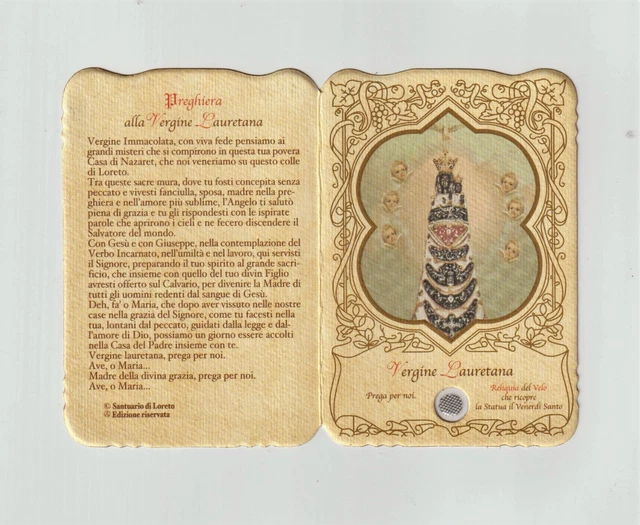 Preghiera
alla Vergine Lauretana
Vergine Immacolata, con viva fede pensiamo ai
grandi misteri che si compirono in questa tua povera
Casa di Nazaret, che noi veneriamo su questo colle
di Loreto.
Tra queste sacre mura, dove tu fosti concepita senza
peccato e vivesti fanciulla, sposa, madre nella pre-
ghiera e nell'amore più sublime, l'Angelo ti salutò
piena di grazia e tu gli rispondesti con le ispirate
parole che aprirono i cieli e ne fecero discendere il
Salvatore del mondo.
Con Gesù e con Giuseppe, nella contemplazione del
Verbo Incarnato, nell'umiltà e nel lavoro, qui servisti
il Signore, preparando il tuo spirito al grande sacri-
ficio, che insieme con quello del tuo divin Figlio
avresti offerto sul Calvario, per divenire la Madre di
tutti gli uomini redenti dal sangue di Gesù.
Deh, fa' o Maria, che dopo aver vissuto nelle nostre
case nella grazia del Signore, come tu facesti nella
tua, lontani dal peccato, guidati dalla legge e dal-
l'amore di Dio, possiamo un giorno essere accolti
nella Casa del Padre insieme con te.
Vergine lauretana, prega per noi.
Ave, o Maria...
Madre della divina grazia, prega per noi.
Ave, o Maria...
© Santuario di Loreto
Edizione riservata
Vergine Lauretana
Prega per noi.
Reliquia del Velo
che ricopre
la Statua il Venerdì Santo